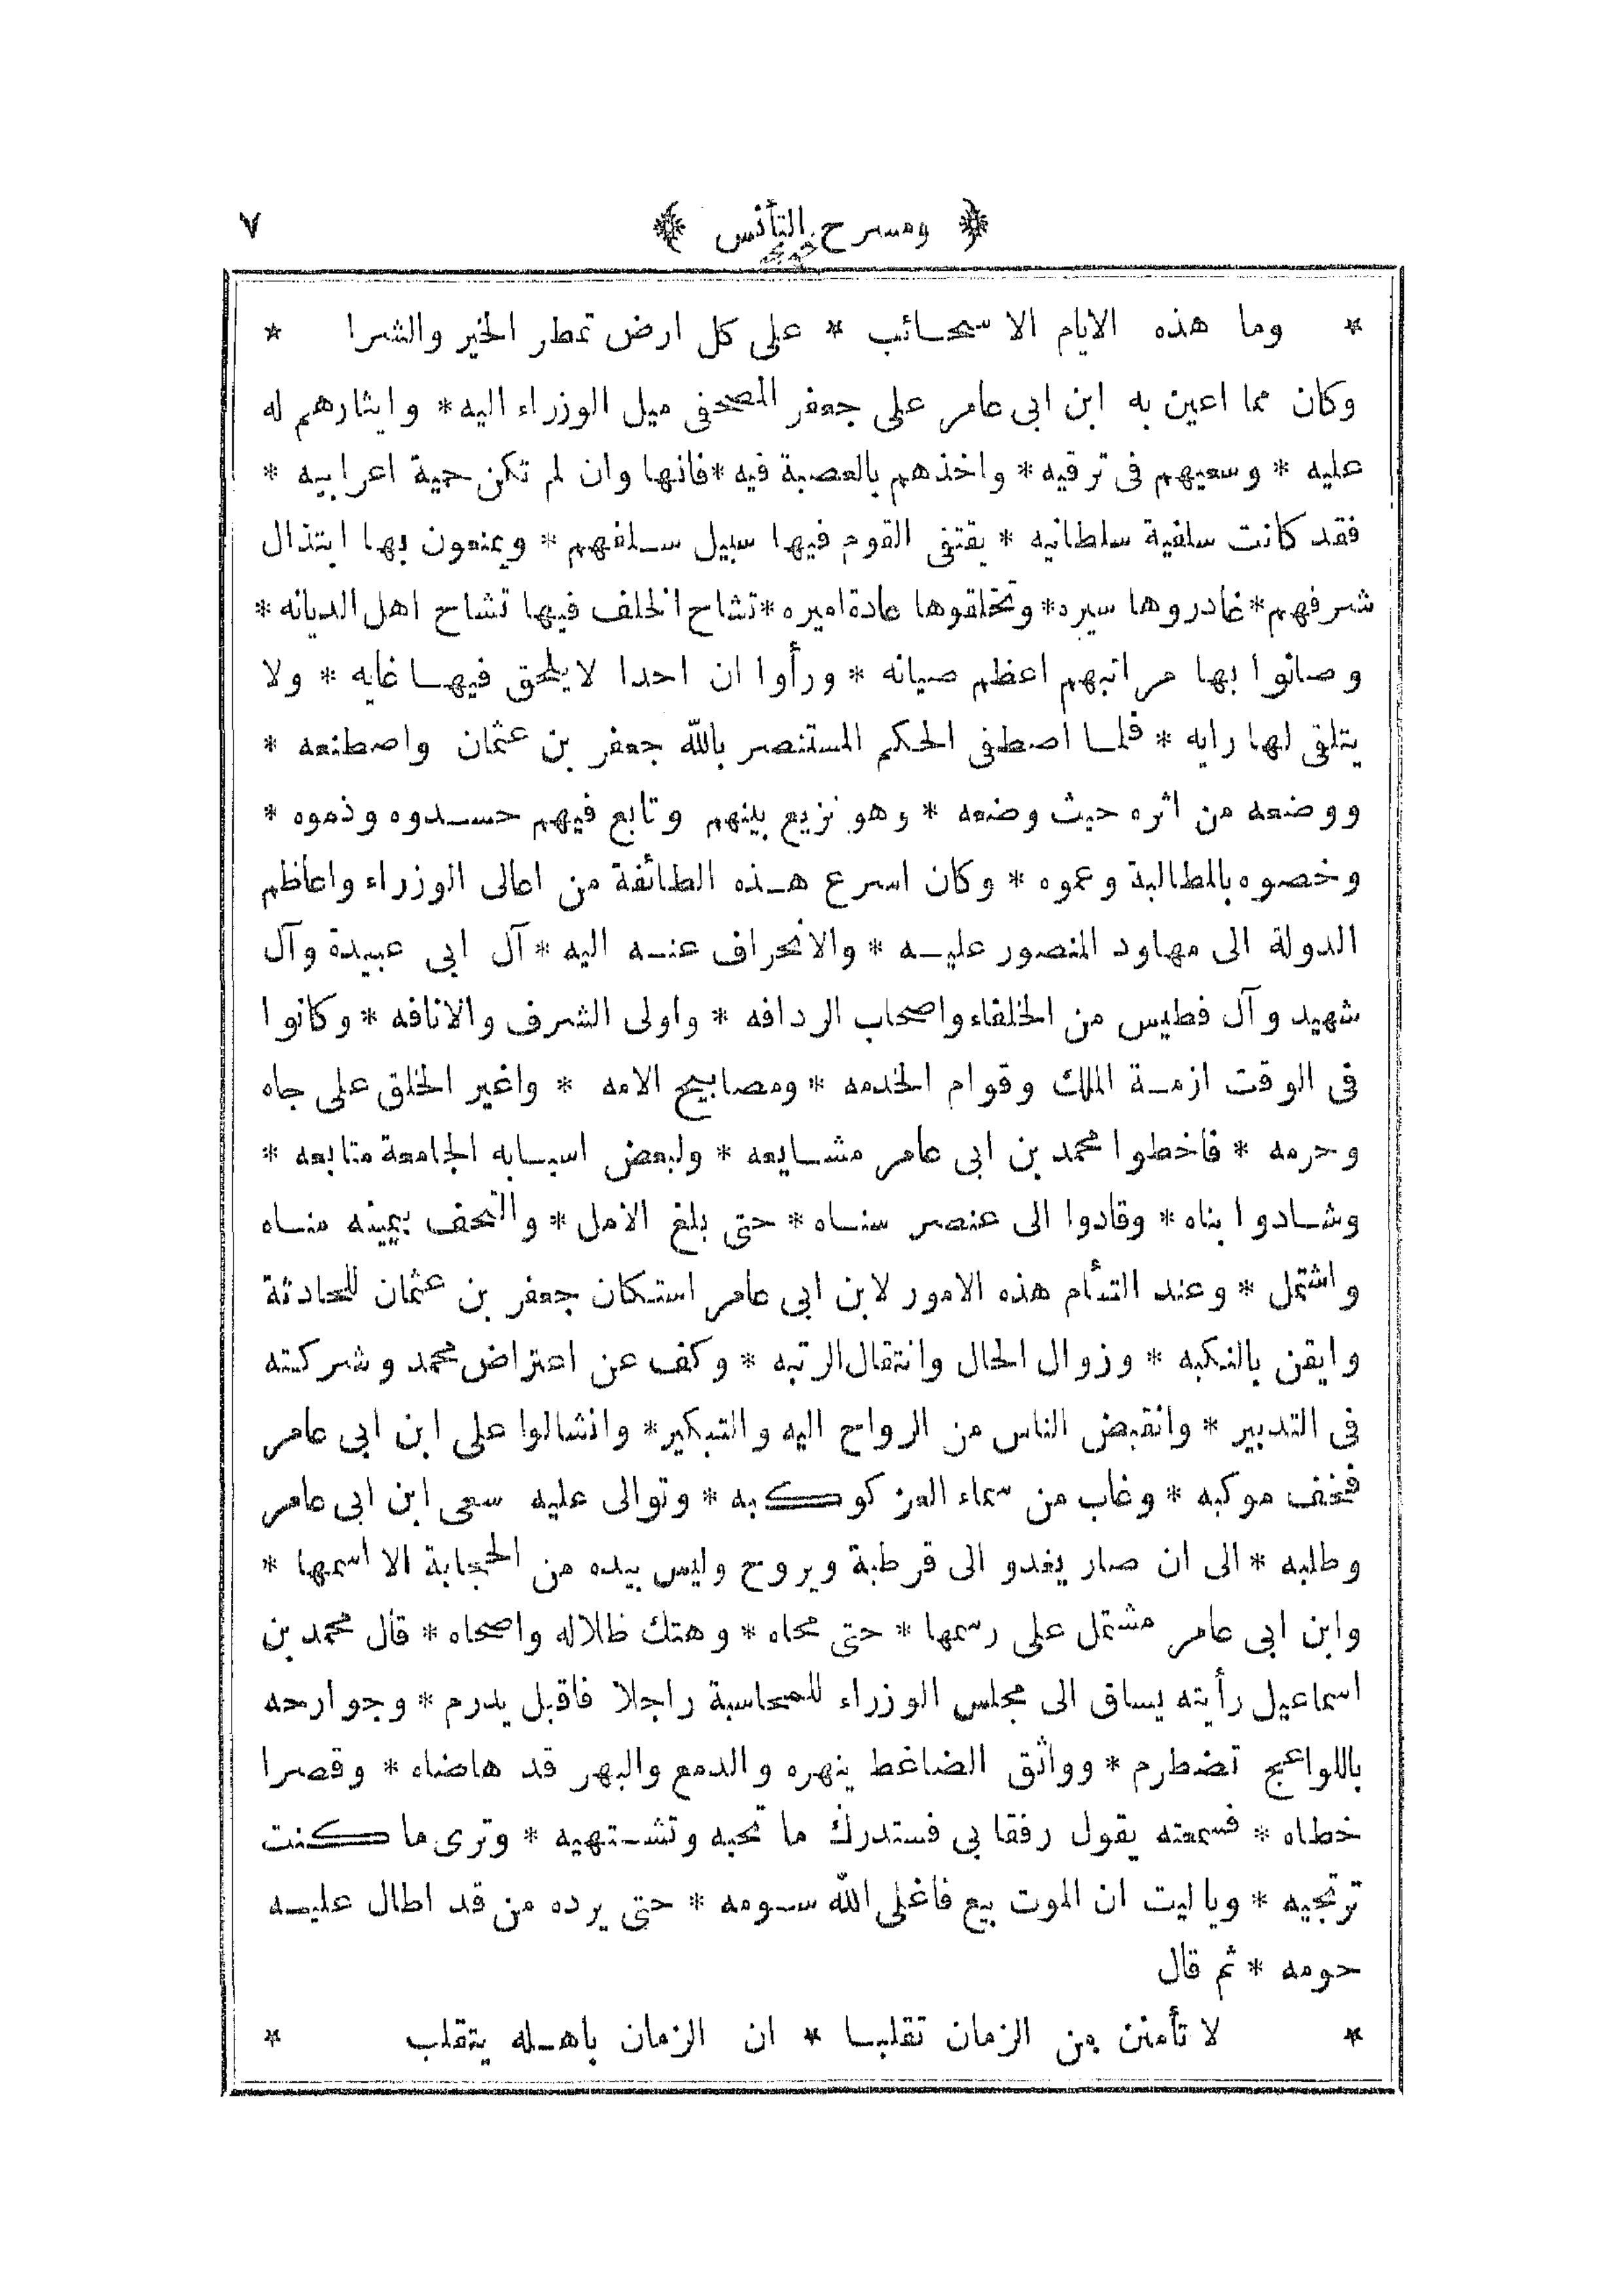 ﴿ ومسرح التأنس ﴾ ٧
* وما هذه الايام الا سحائب * على كل ارض تمطر الخير والشرا *
وكان مما اعين به ابن ابى عامر على جعفر المصحفى ميل الوزراء اليه * وايثارهم له
عليه * وسعيهم فى ترقيه * واخذهم بالعصبة فيه * فانها وان لم تكن حمية اعرابيه *
فقد كانت سلفية سلطانيه * يقتفى القوم فيها سبيل سلفهم * ويمنعون بها ابتذال
شرفهم * غادروها سيره * وتخلقوها عادة اميره * تشاح الخلف فيها تشاح اهل الديانه *
وصانوا بها مراتبهم اعظم صيانه * ورأوا ان احدا لا يلحق فيها غايه * ولا
يتلقى لها رايه * فلما اصطفى الحكم المستنصر بالله جعفر بن عثمان واصطنعه *
ووضعه من اثره حيث وضعه * وهو نزيع بينهم وتابع فيهم حسدوه وذموه *
وخصوه بالمطالبة وعموه * وكان اسرع هذه الطائفة من اعالى الوزراء واعاظم
الدولة الى مهاود المنصور عليه * والانحراف عنه اليه * آل ابى عبيدة وآل
شهيد وآل فطيس من الخلفاء واصحاب الردافه * واولى الشرف والانافه * وكانوا
فى الوقت ازمة الملك وقوام الخدمه * ومصابيح الامه * واغير الخلق على جاه
وحرمه * فاخطوا محمد بن ابى عامر مشايعه * ولبعض اسبابه الجامعة متابعه *
وشادوا بناه * وقادوا الى عنصر سناه * حتى بلغ الامل * والتحف بيمينه مناه
واشتمل * وعند التئام هذه الامور لابن ابى عامر استكان جعفر بن عثمان للحادثة
وايقن بالنكبه * وزوال الحال وانتقال الرتبه * وكف عن اعتراض محمد وشركته
فى التدبير * وانقبض الناس من الرواح اليه والتبكير * وانثالوا على ابن ابى عامر
فخف موكبه * وغاب من سماء العز كوكبه * وتوالى عليه سعى ابن ابى عامر
وطلبه * الى ان صار يغدو الى قرطبة ويروح وليس بيده من الحجابة الا اسمها *
وابن ابى عامر مشتمل على رسمها * حتى محاه * وهتك ظلاله واضحاه * قال محمد بن
اسماعيل رأيته يساق الى مجلس الوزراء للمحاسبة راجلا فاقبل يدرم * وجوارحه
باللواعج تضطرم * وواثق الضاغط ينهره والدمع والبهر قد هاضاه * وقصرا
خطاه * فسمعته يقول رفقا بى فستدرك ما تحبه وتشتهيه * وترى ما كنت
ترتجيه * ويا ليت ان الموت بيع فاغلى الله سومه * حتى يرده من قد اطال عليه
حومه * ثم قال
* لا تأمنن من الزمان تقلبا * ان الزمان باهله يتقلب *